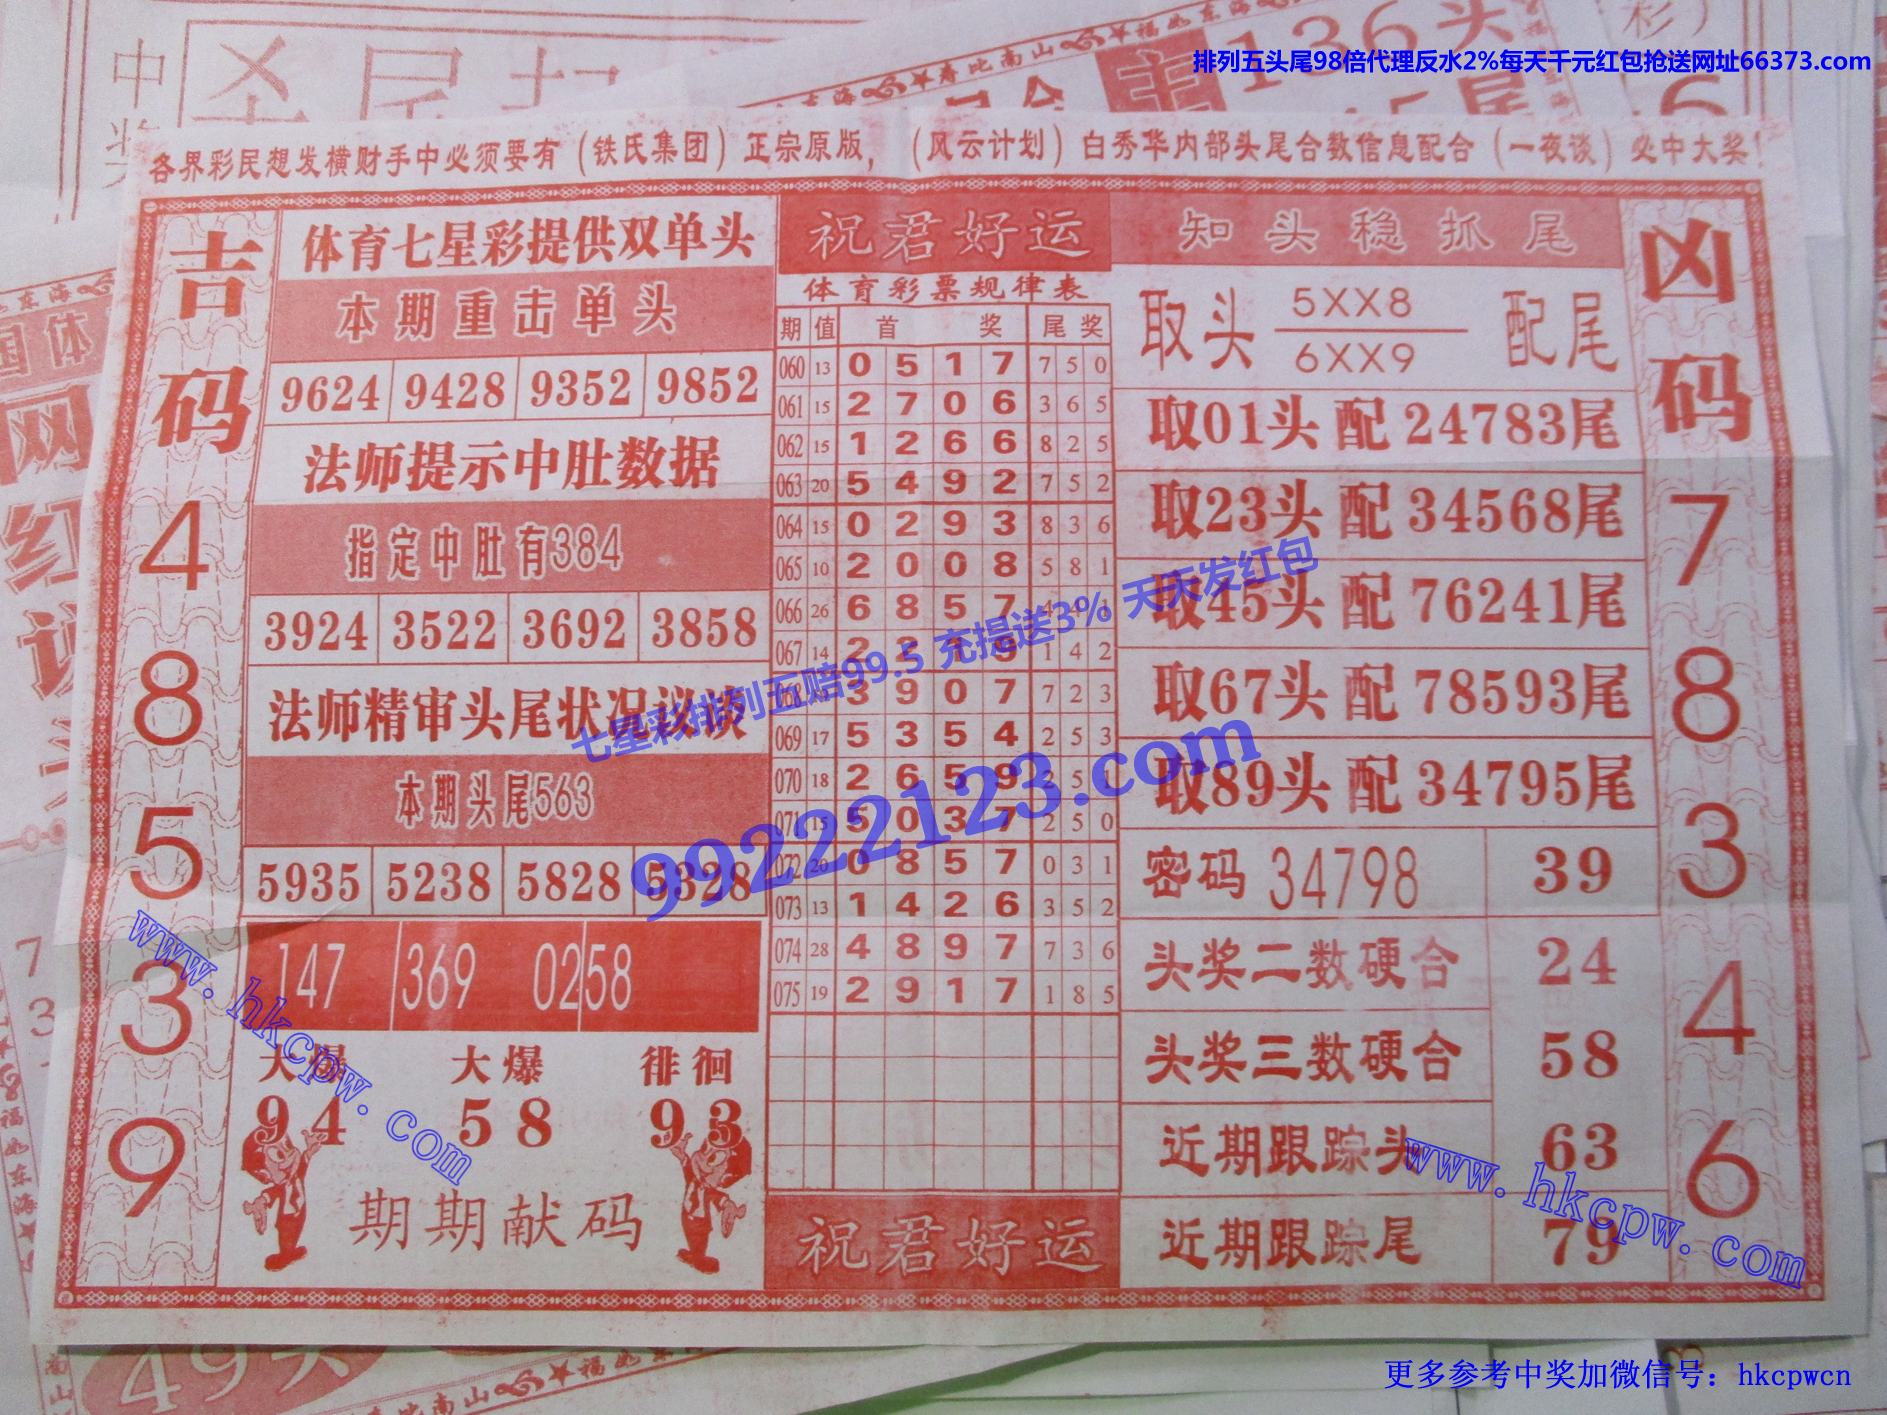 排列五头尾98倍代理反水2%每天千元红包抢送网址66373.com
各界彩民想发横财手中必须要有（铁氏集团）正宗原版，（风云计划）白秀华内部头尾合数信息配合（一夜谈）必中大奖！
吉码
4
8
5
3
9
体育七星彩提供双单头
本期重击单头
9624 9428 9352 9852
法师提示中肚数据
指定中肚有384
3924 3522 3692 3858
法师精审头尾状况议谈
本期头尾563
5935 5238 5828 5328
147 369 0258
大爆 大爆 徘徊
94 58 93
期期献码
祝君好运
体育彩票规律表
期 值 首 奖 尾 奖
060 13 0 5 1 7 7 5 0
061 15 2 7 0 6 3 6 5
062 15 1 2 6 6 8 2 5
063 20 5 4 9 2 7 5 2
064 15 0 2 9 3 8 3 6
065 10 2 0 0 8 5 8 1
066 26 6 8 5 7 4 4 1
067 14 2 2 1 1 4 2
068 3 9 0 7 7 2 3
069 17 5 3 5 4 2 5 3
070 18 2 6 5 9 2 5 1
071 15 5 0 3 7 2 5 0
072 20 0 8 5 7 0 3 1
073 13 1 4 2 6 3 5 2
074 28 4 8 9 7 7 3 6
075 19 2 9 1 7 1 8 5
祝君好运
知头稳抓尾
取头 5XX8 配尾
6XX9
取01头 配 24783尾
取23头 配 34568尾
取45头 配 76241尾
取67头 配 78593尾
取89头 配 34795尾
密码 34798 39
头奖二数硬合 24
头奖三数硬合 58
近期跟踪头 63
近期跟踪尾 79
凶码
7
8
3
4
6
七星彩排列五赔99.5 充提送3% 天天发红包
99222123.com
www.hkcpw.com
www.hkcpw.com
更多参考中奖加微信号：hkcpwcn